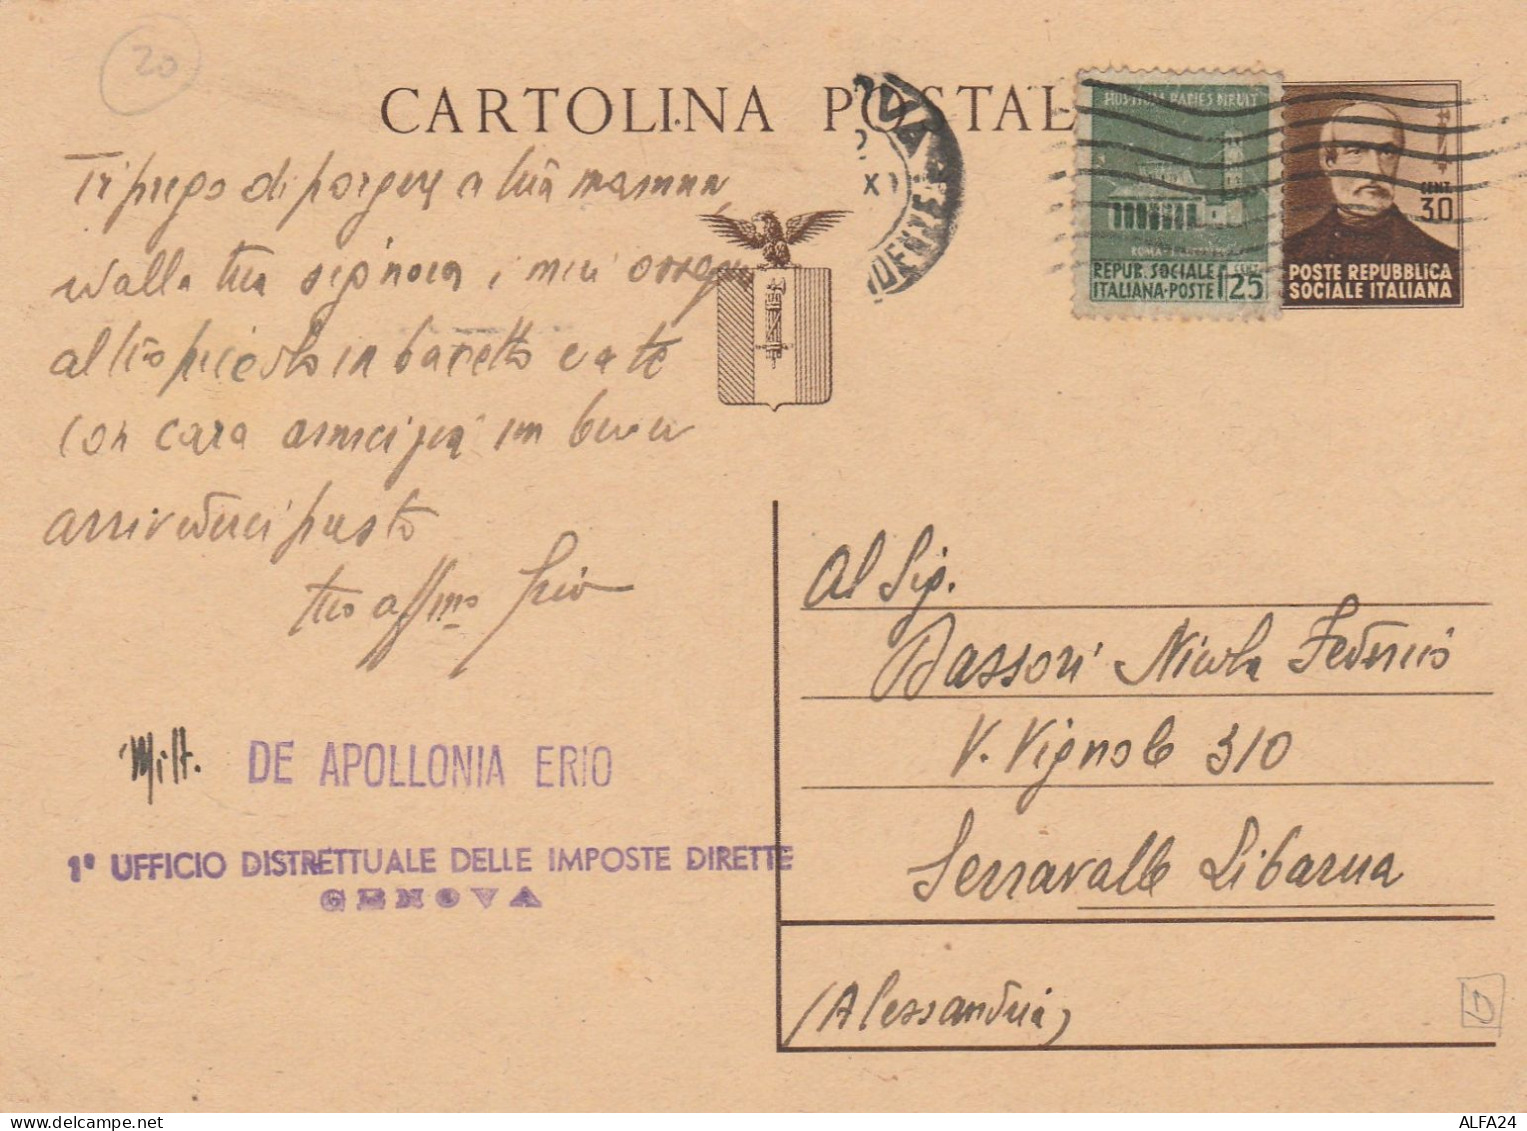 20
CARTOLINA POSTAL
HOSTIUM RABIES DIRUIT
REPUB. SOCIALE
ITALIANA-POSTE
CENT.
25
CENT.
30
POSTE REPUBBLICA
SOCIALE ITALIANA
Ti prego di porgere a tua mamma,
alla tua signora i miei
al tuo piccolo in e a te
con cara amicizia un
arrivederci presto
tuo aff.mo Erio
Milt. DE APOLLONIA ERIO
1° UFFICIO DISTRETTUALE DELLE IMPOSTE DIRETTE
GENOVA
Al Sig.
Bassori Nicola Federico
V. Vignole 310
Serravalle Libarna
(Alessandria)
ALFA24